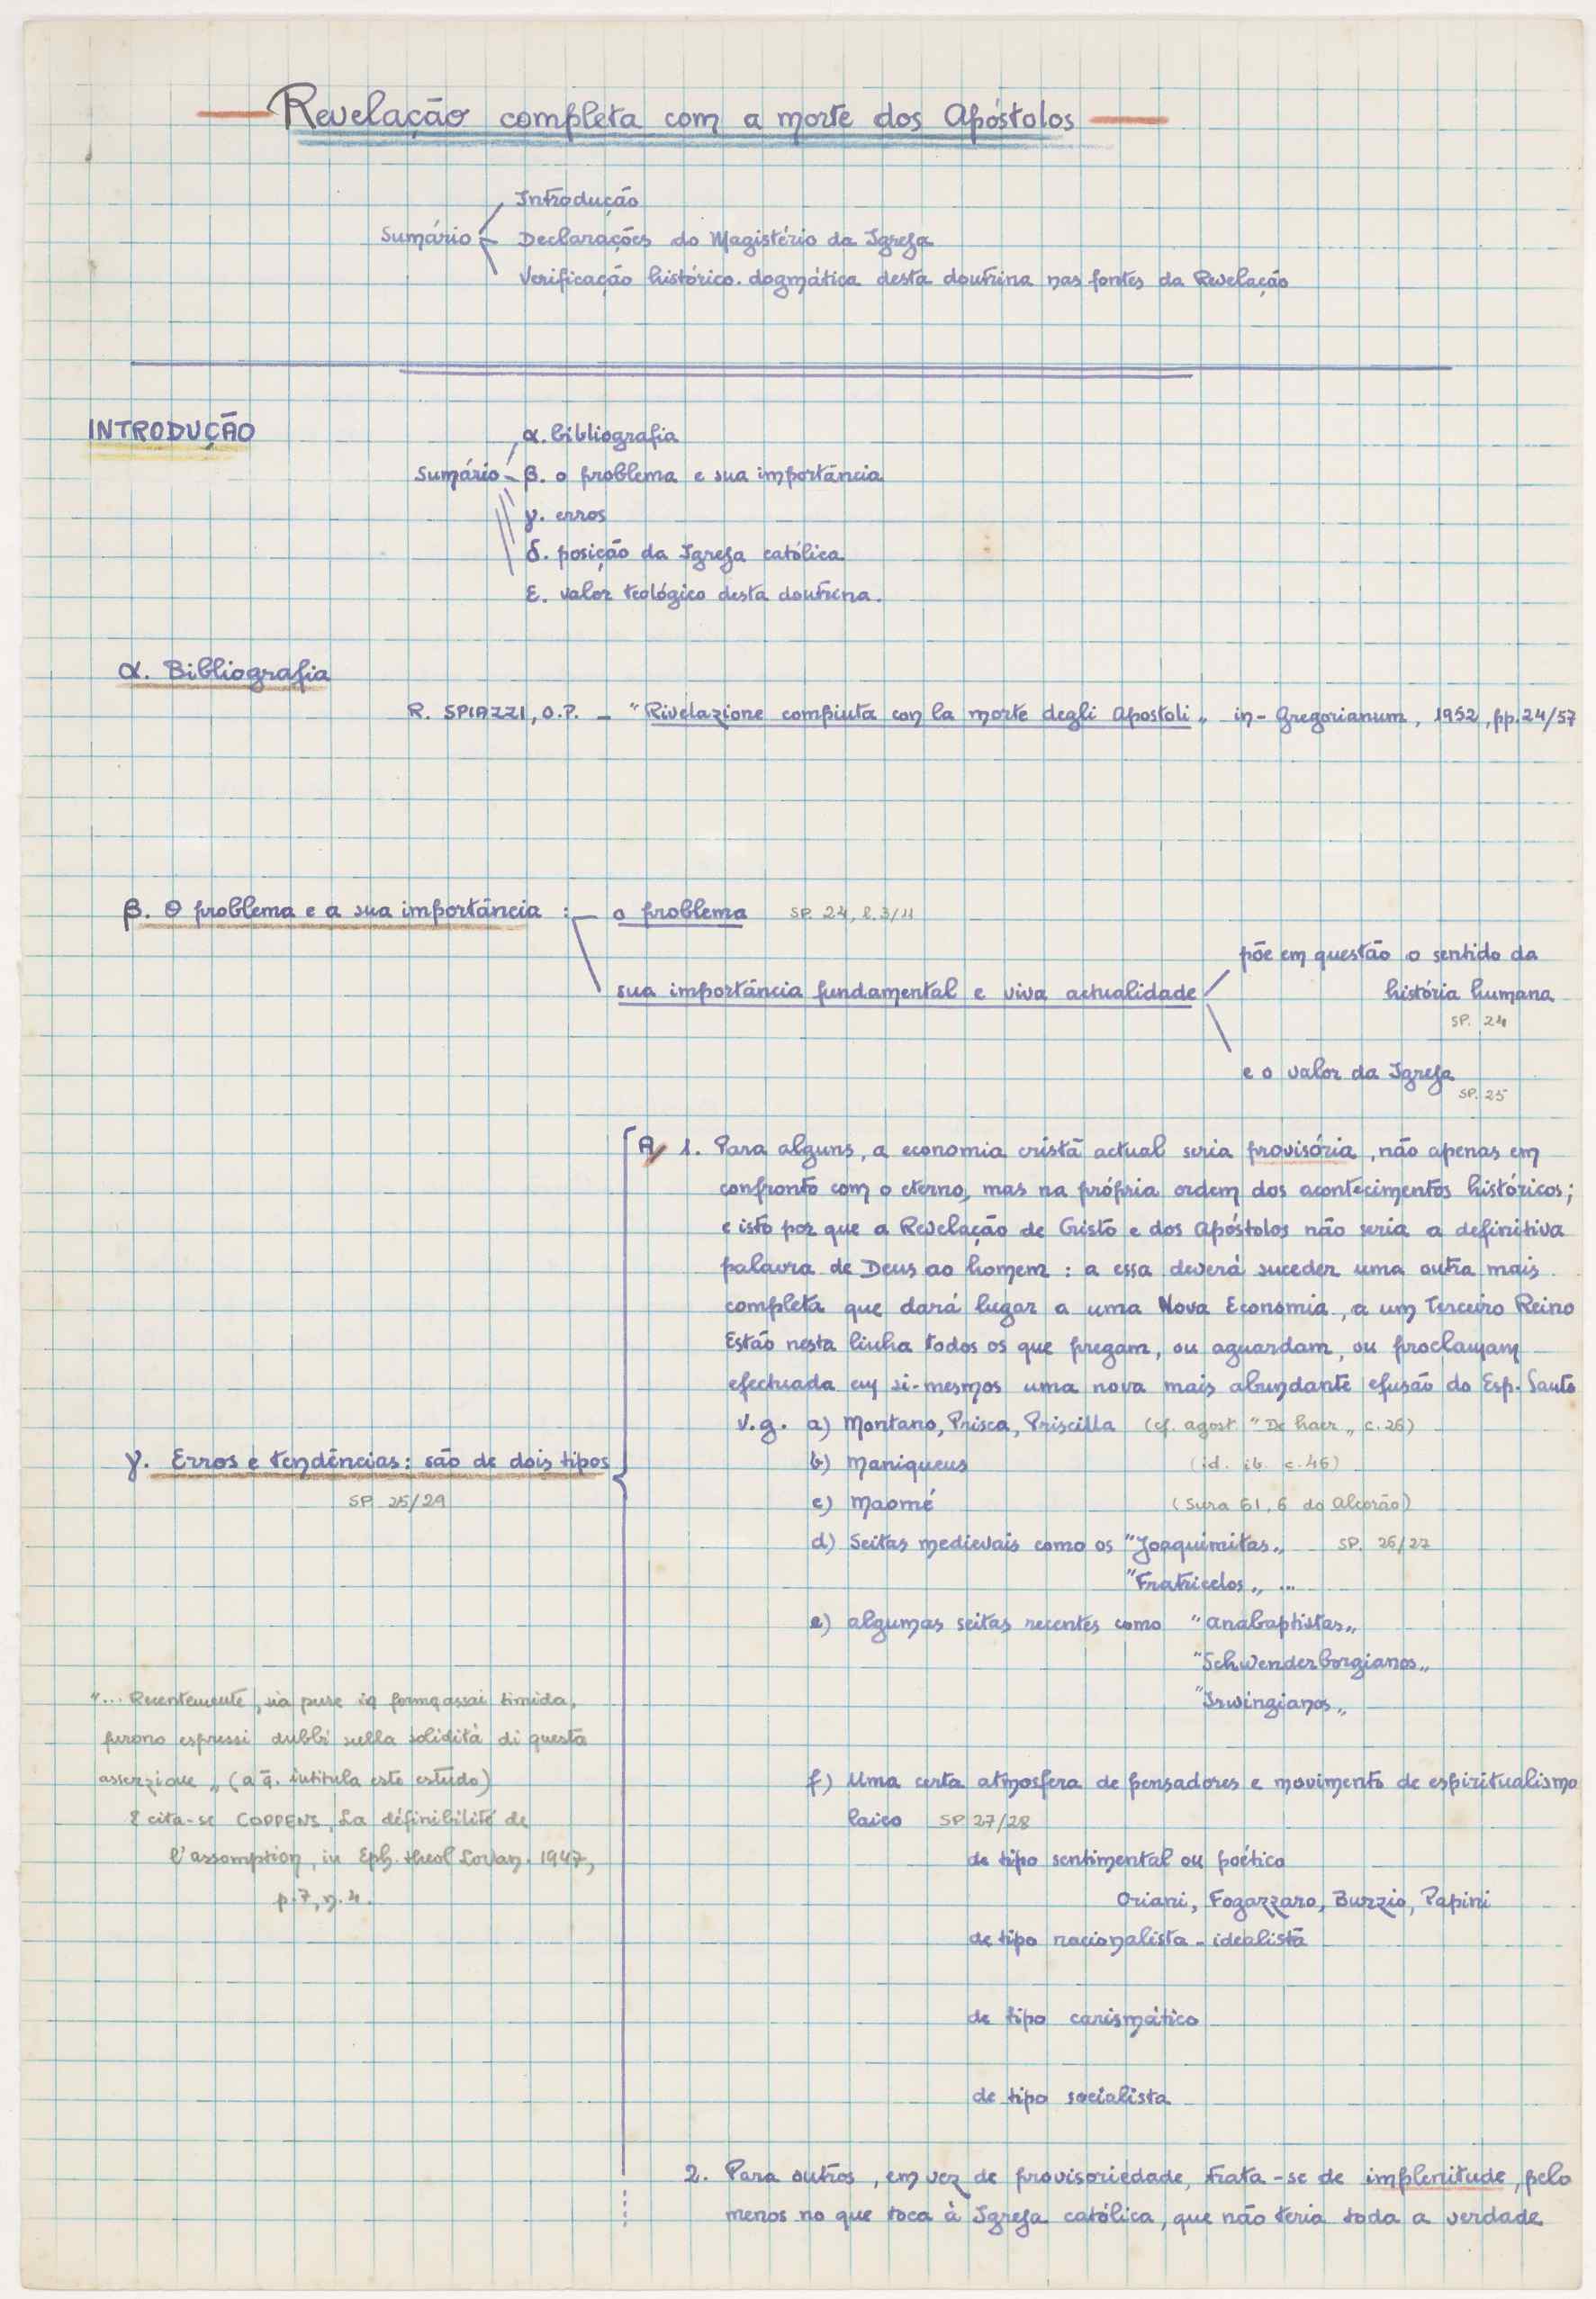 Revelação completa com a morte dos Apóstolos
Introdução
Sumário
Declarações do Magistério da Igreja
Verificação histórico-dogmática desta doutrina nas fontes da Revelação
INTRODUÇÃO
α. bibliografia
Sumário
β. o problema e sua importância
γ. erros
δ. posição da Igreja católica
ε. valor teológico desta doutrina.
α. Bibliografia
R. SPIAZZI, O.P. – "Rivelazione compiuta con la morte degli Apostoli" in- Gregorianum, 1952, pp. 24/57
β. O problema e a sua importância :
o problema SP. 24, l. 3/11
sua importância fundamental e viva actualidade
põe em questão o sentido da
história humana
SP. 24
e o valor da Igreja
SP. 25
γ. Erros e tendências: são de dois tipos
SP. 25/29
A/ 1. Para alguns, a economia cristã actual seria provisória, não apenas em
confronto com o eterno, mas na própria ordem dos acontecimentos históricos;
e isto por que a Revelação de Cristo e dos Apóstolos não seria a definitiva
palavra de Deus ao homem : a essa deverá suceder uma outra mais
completa que dará lugar a uma Nova Economia, a um Terceiro Reino
Estão nesta linha todos os que pregam, ou aguardam, ou proclamam
efectuada em si-mesmos uma nova mais abundante efusão do Esp. Santo
v.g. a) Montano, Prisca, Priscilla (cf. Agost. "De haer" c. 26)
b) Maniqueus (id. ib. c. 46)
c) Maomé (Sura 61, 6 do Alcorão)
d) Seitas medievais como os "Joaquimitas" SP. 26/27
"Fratricelos" ...
e) algumas seitas recentes como "Anabaptistas"
"Schwenderborgianos"
"Irwingianos"
f) Uma certa atmosfera de pensadores e movimento de espiritualismo
laico SP 27/28
de tipo sentimental ou poético
Oriani, Fogazzaro, Burzio, Papini
de tipo racionalista - idealista
de tipo carismático
de tipo socialista
2. Para outros, em vez de provisoriedade, trata-se de implenitude, pelo
menos no que toca à Igreja católica, que não teria toda a verdade
"... Recentemente, sia pure in forma assai timida,
furono espressi dubbi sulla solidità di questa
asserzione" (a q̄. intitula este estudo)
E cita-se COPPENS, La définibilité de
l'assomption, in Eph. theol Lovan. 1947,
p. 7, n. 4.